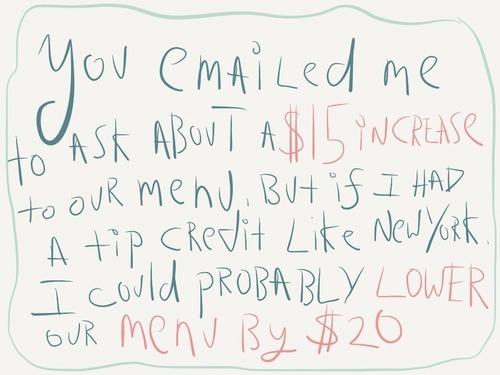 You emailed me
to ask about a $15 increase
to our menu. But if I had
a tip credit like New York.
I could probably lower
our menu by $20